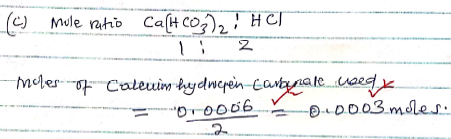 (c) Mole ratio Ca(HCO3)2 : HCl
1 : 2
Moles of Calcuim hydrogen Carbonate used
= 0.0006 / 2 = 0.0003 moles.